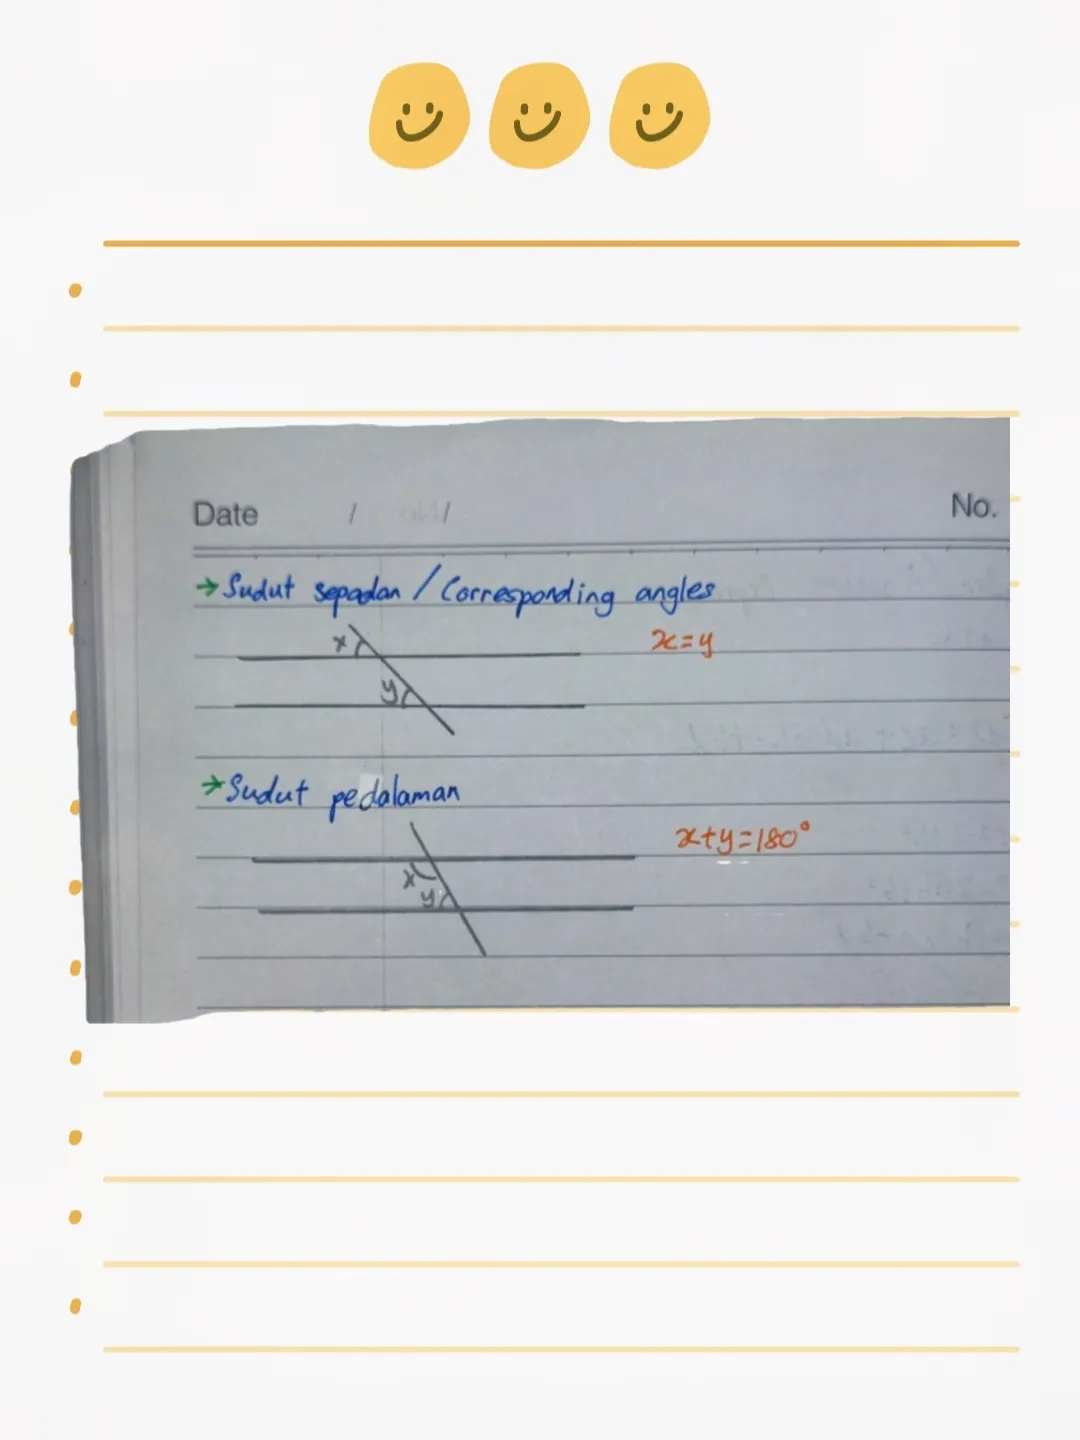 Date / / No.
→ Sudut sepadan / Corresponding angles
x
x=y
y
→ Sudut pedalaman
x+y=180°
x
y